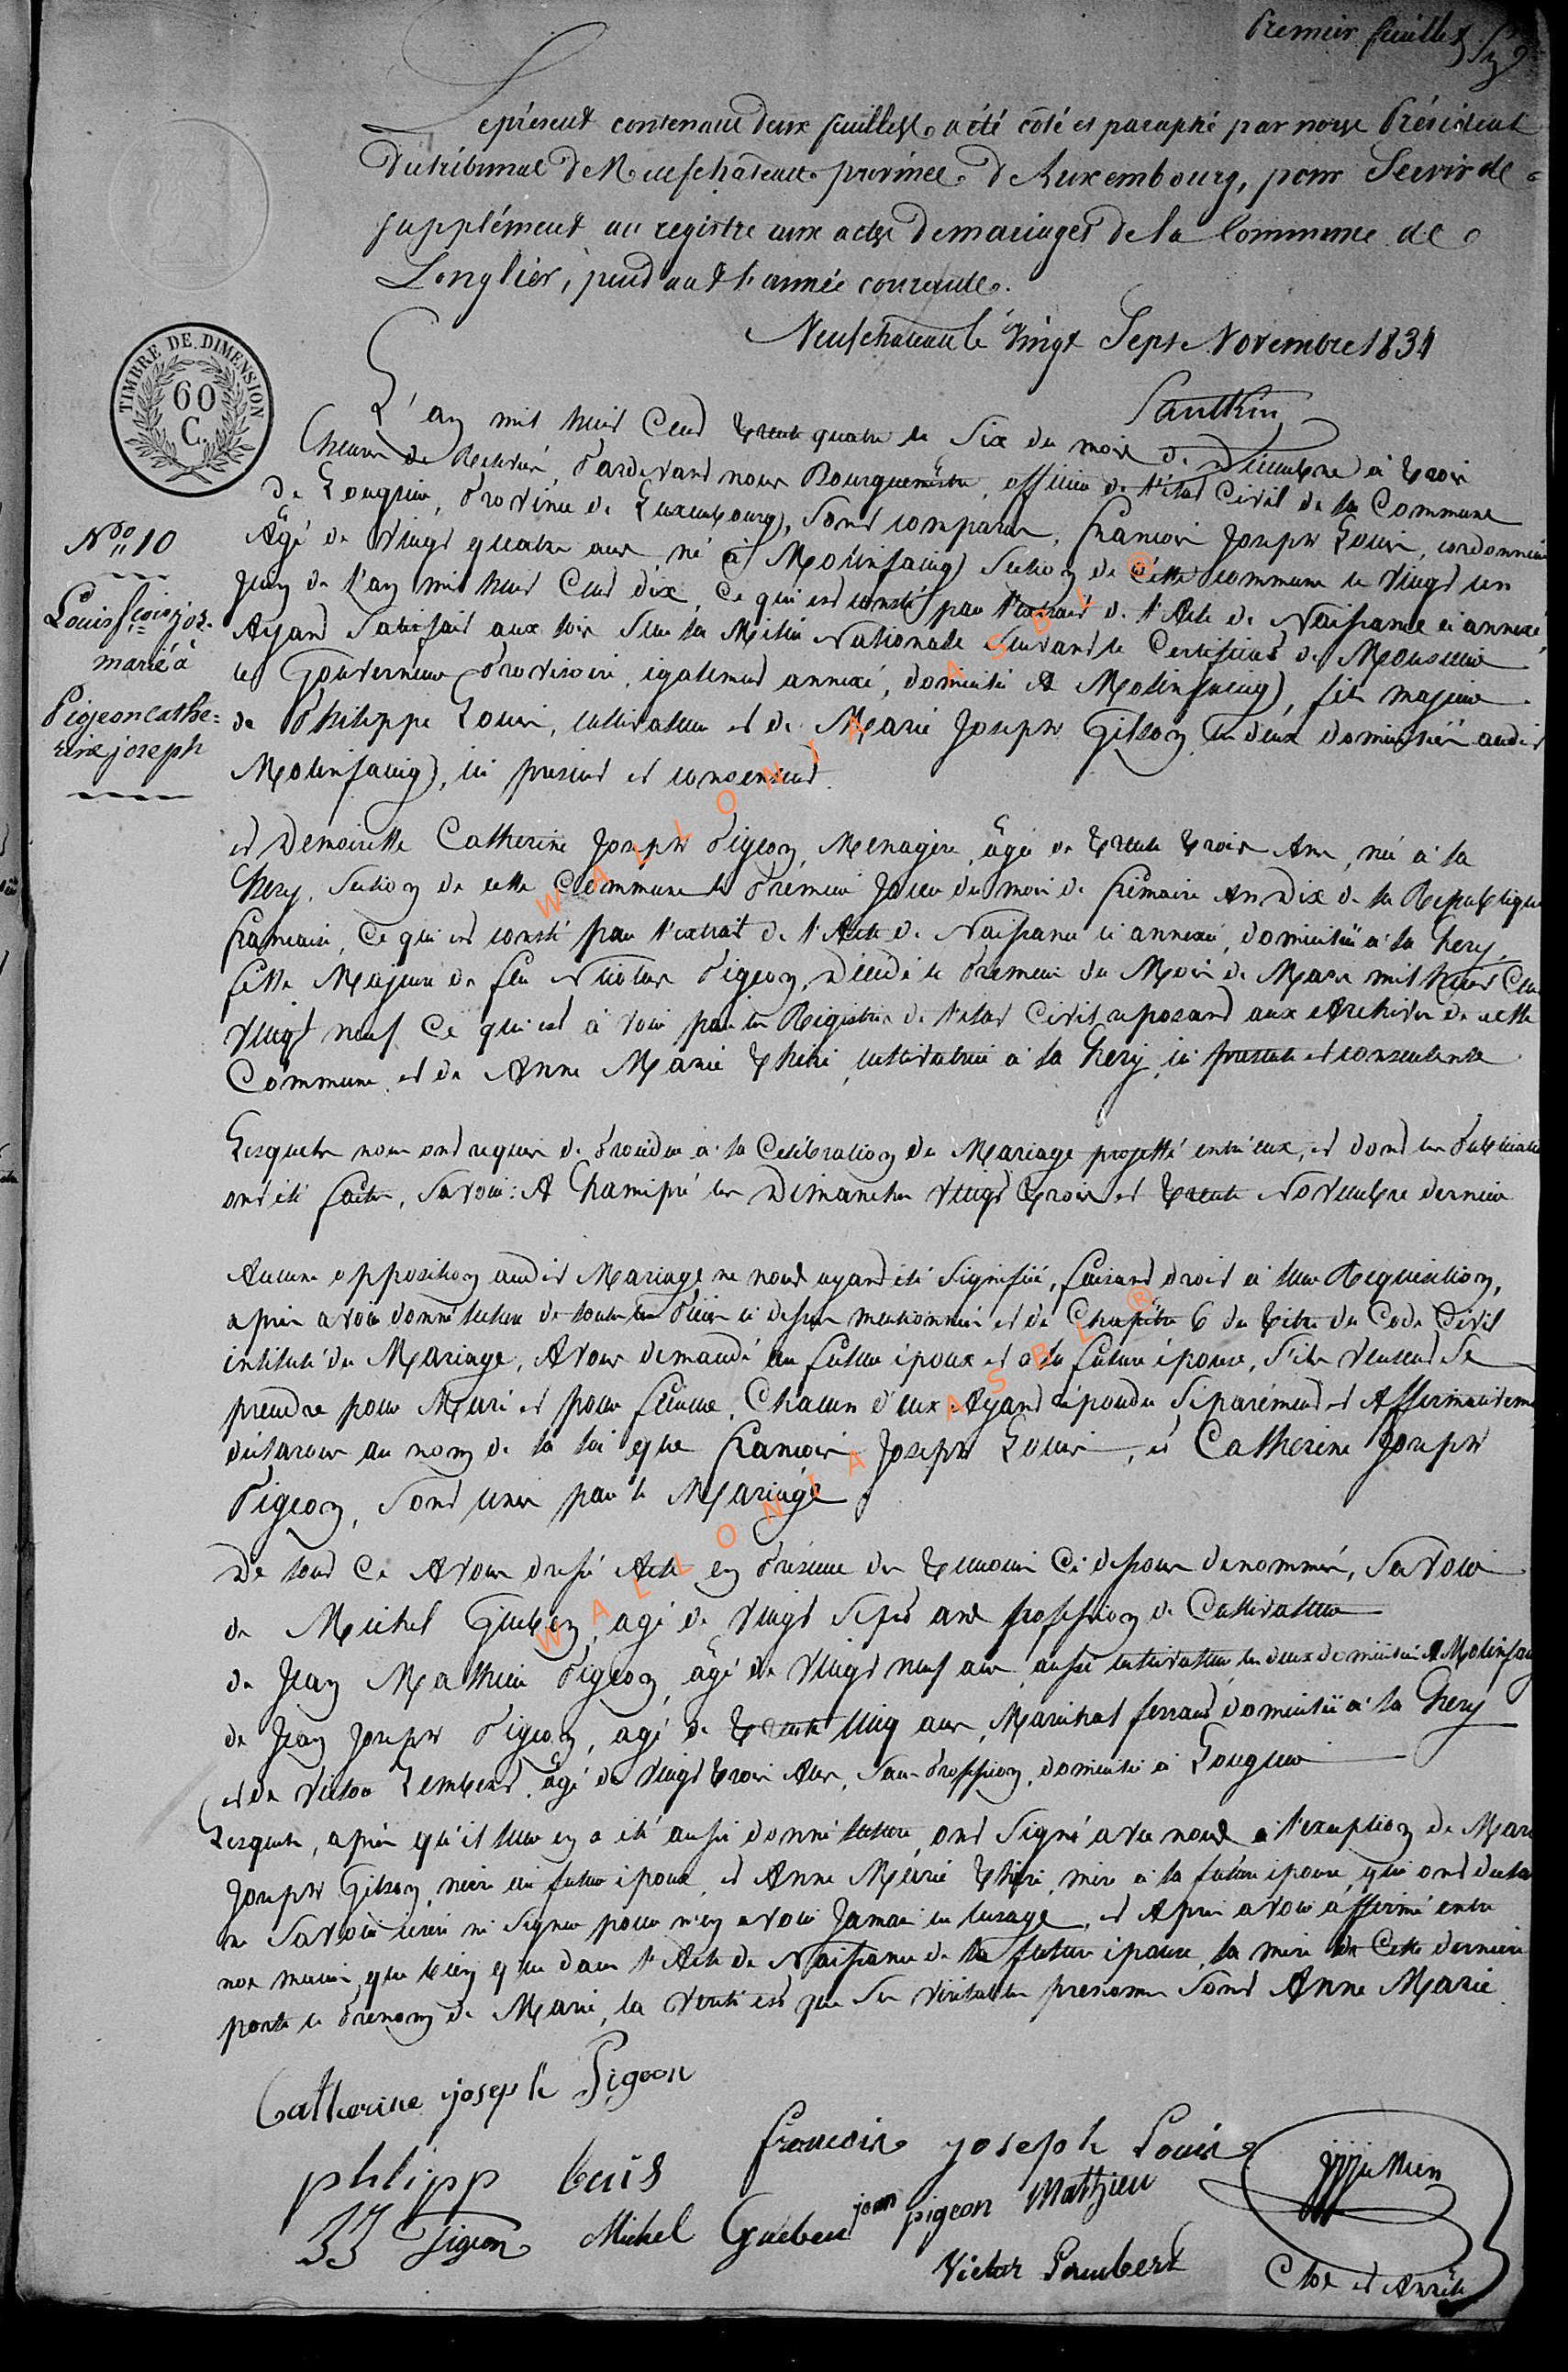 Premier feuillet
Le présent contenant deux feuillets a été côté et paraphé par nous Président
du tribunal de Neufchateau province de Luxembourg, pour Servir de
supplément au registre aux actes de mariages de la Commune de
Longlier, pendant l'année courante.
Neufchateau le Vingt Sept Novembre 1834
TIMBRE DE DIMENSION
60
C.
L'an mil huit Cent trente quatre le Six du mois de Décembre à trois
heures de Relevée, Pardevant nous Bourguemestre, officier de l'état Civil de la Commune
de Longlier, Province de Luxembourg, Sont comparus, François Joseph Louis, cordonnier
Nº 10
Louis fçois jos.
marié à
Pigeon cathe=
rine joseph
Âgé de Vingt quatre ans, né à Molinfaing Section de Cette commune le Vingt un
Juin de l'an mil huit Cent dix, Ce qui est consté par l'extrait de l'Acte de Naissance ci annexé,
Ayant Satisfait aux lois Sur la Milice Nationale Suivant le Certificat de Monsieur
le Gouverneur Provisoire, également annexé, domicilié à Molinfaing, fils majeur
de Philippe Louis, cultivateur et de Marie Joseph Gilson, les deux domiciliés audit
Molinfaing, ici présents et consentants
et Demoiselle Catherine Joseph Pigeon, Menagère, âgée de trente trois Ans, née à la
hery, Section de cette Commune le Prémier Jour du mois de frimaire An Dix de la République
francaise, Ce qui est consté par l'extrait de l'Acte de Naissance ci annexé, domiciliée à la hery,
fille Majeure de feu Nicolas Pigeon, Décédé le Premier du Mois de Mars mil huit Cent
vingt neuf Ce qui est à voir par les Régistres de l'état Civil reposant aux Archives de cette
Commune, et de Anne Marie théri, cultivatrice à la hery, ici présente et consentente
Lesquels nous ont requis de Procéder à la Célébration du Mariage projetté entr'eux, et dont les Publications
ont été faites, Savoir: A hamipré les Dimanches Vingt trois et trente Novembre dernier
Aucune opposition audit Mariage ne nous ayant été Signifiée, faisant droit à leur Requisition,
après avoir donné lecture de toutes les Pièces ci dessus mentionnées et du Chapitre 6 du titre du Code Civil
intitulé du Mariage, Avons demandé au futur époux et à la future épouse, S'ils veulent Se
prendre pour Mari et pour femme, Chacun d'eux Ayant répondu Séparément et Affirmativement
déclarons au nom de la loi que François Joseph Louis, et Catherine Joseph
Pigeon, Sont unis par le Mariage
De tout Ce Avons dressé Acte en Présence des témoins Ci dessous dénommés, Savoir
de Michel Gueben, agé de Vingt Sept ans profession de Cultivateur
de Jean Mathieu Pigeon, âgé de Vingt neuf ans, aussi cultivateur les deux domiciliés à Molinfaing
de Jean Joseph Pigeon, agé de trente cinq ans, Maréchal ferrant domicilié à la hery
et de Victor Lembert, âgé de Vingt trois Ans, Sans Proffession, domicilié à Longlier
Lesquels, après qu'il leur en a été aussi donné lecture, ont Signé avec nous à l'exception de Marie
Joseph Gilson, mère au futur époux, et Anne Marie théri, mère à la future épouse, qui ont déclaré
ne Savoir écrire ni Signer pour n'en avoir Jamais eu l'usage, et Après avoir affirmé entre
nos mains, que bien que dans l'Acte de Naissance de la future épouse, la mère de Cette dernière
porte le Prénom de Marie, la Vérité est que Ses Véritables prénoms Sont Anne Marie
Catherine joseph Pigeon
francois joseph Louis
philipp louis
jean pigeon Mathieu
JJ Pigeon Michel Gueben
Victor Lambert
Clos et Arrêté
WALLONIA ASBL ®
WALLONIA ASBL ®